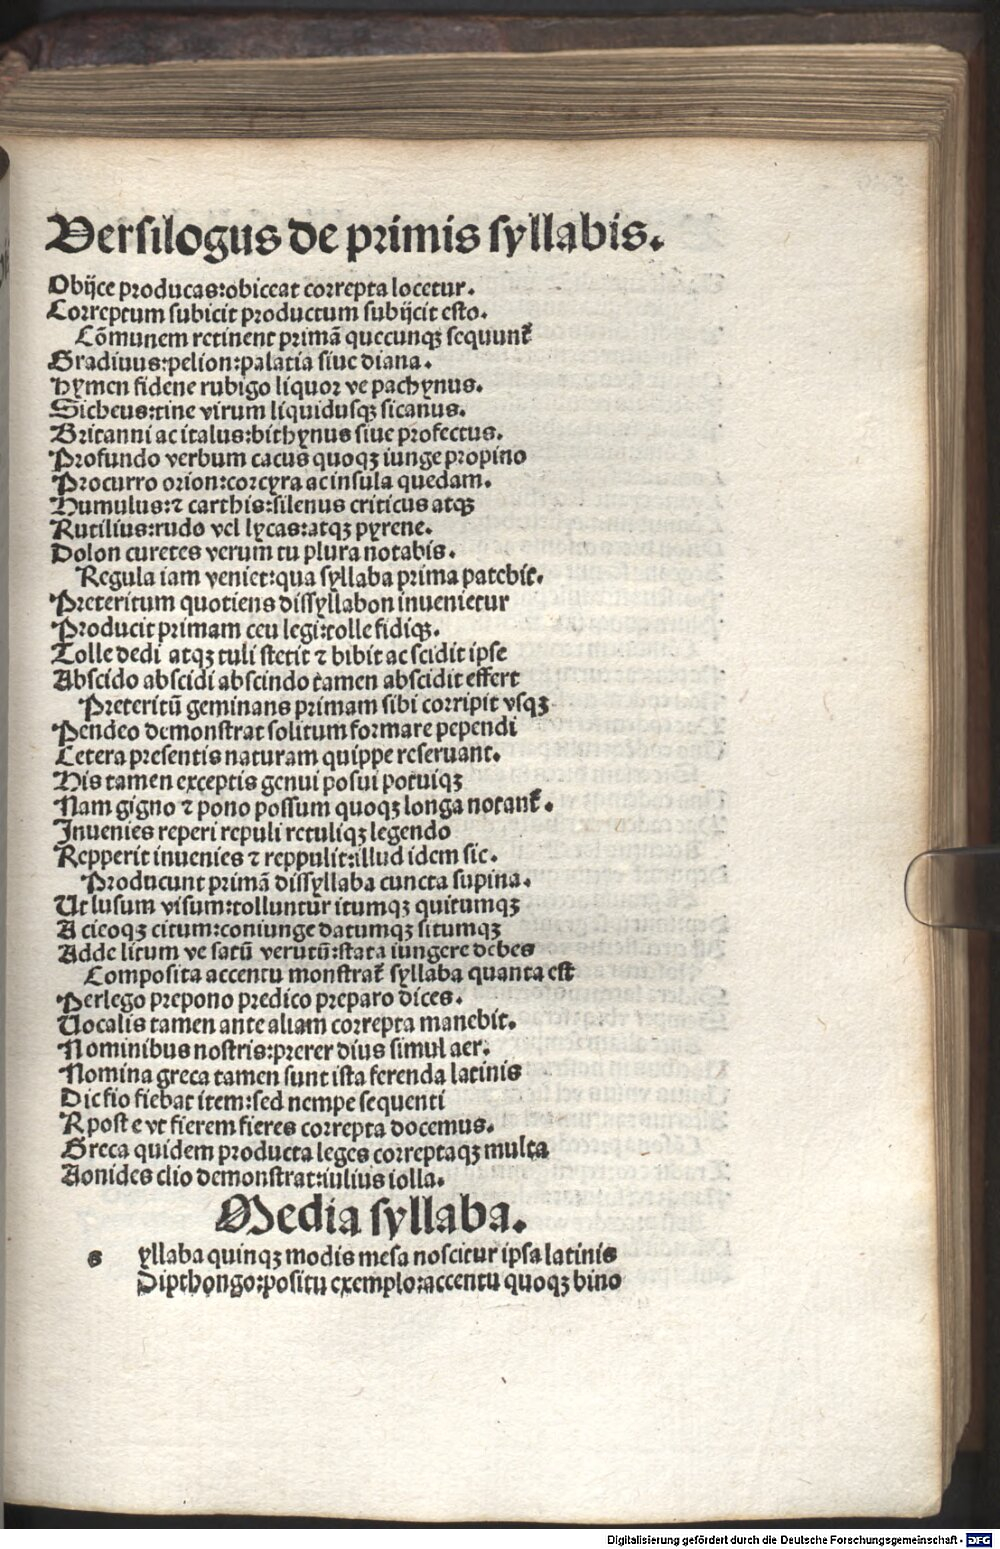 Versilogus de primis syllabis.
Obijce producas:obiceat correpta locetur.
Correptum subicit productum subijcit esto.
Cōmunem retinent primā quecunqꝫ sequunt᷑
Gradiuus:pelion:palatia siue diana.
Hymen fidene rubigo liquor ve pachynus.
Sicheus:tine virum liquidusqꝫ sicanus.
Britanni ac italus:bithynus siue profectus.
Profundo verbum cacus quoqꝫ iunge propino
Procurro orion:corcyra ac insula quedam.
Humulus:⁊ carthis:silenus criticus atqꝫ
Rutilius:rudo vel lycas:atqꝫ pyrene.
Dolon curetes verum tu plura notabis.
Regula iam veniet:qua syllaba prima patebit.
Preteritum quotiens dissyllabon inuenietur
Producit primam ceu legi:tolle fidiqꝫ.
Tolle dedi atqꝫ tuli stetit ⁊ bibit ac scidit ipse
Abscido abscidi abscindo tamen abscidit effert
Preteritū geminans primam sibi corripit vsqꝫ
Pendeo demonstrat solitum formare pependi
Cetera presentis naturam quippe reseruant.
His tamen exceptis genui posui potuiqꝫ
Nam gigno ⁊ pono possum quoqꝫ longa notant᷑.
Inuenies reperi repuli retuliqꝫ legendo
Repperit inuenies ⁊ reppulit:illud idem sic.
Producunt primā dissyllaba cuncta supina.
Ut lusum visum:tolluntur itumqꝫ quitumqꝫ
A cieoqꝫ citum:coniunge datumqꝫ situmqꝫ
Adde litum ve satū verutū:stata iungere debes
Composita accentu monstrat᷑ syllaba quanta est
Perlego prepono predico preparo dices.
Uocalis tamen ante aliam correpta manebit.
Nominibus nostris:preter dius simul aer.
Nomina greca tamen sunt ista ferenda latinis
Dic fio fiebat item:sed nempe sequenti
R post e vt fierem fieres correpta docemus.
Greca quidem producta leges correptaqꝫ multa
Aonides clio demonstrat:iulius iolla.
Media syllaba.
s yllaba quinqꝫ modis mesa noscitur ipsa latinis
Dipthongo:positu exemplo:accentu quoqꝫ bino
Digitalisierung gefördert durch die Deutsche Forschungsgemeinschaft - DFG